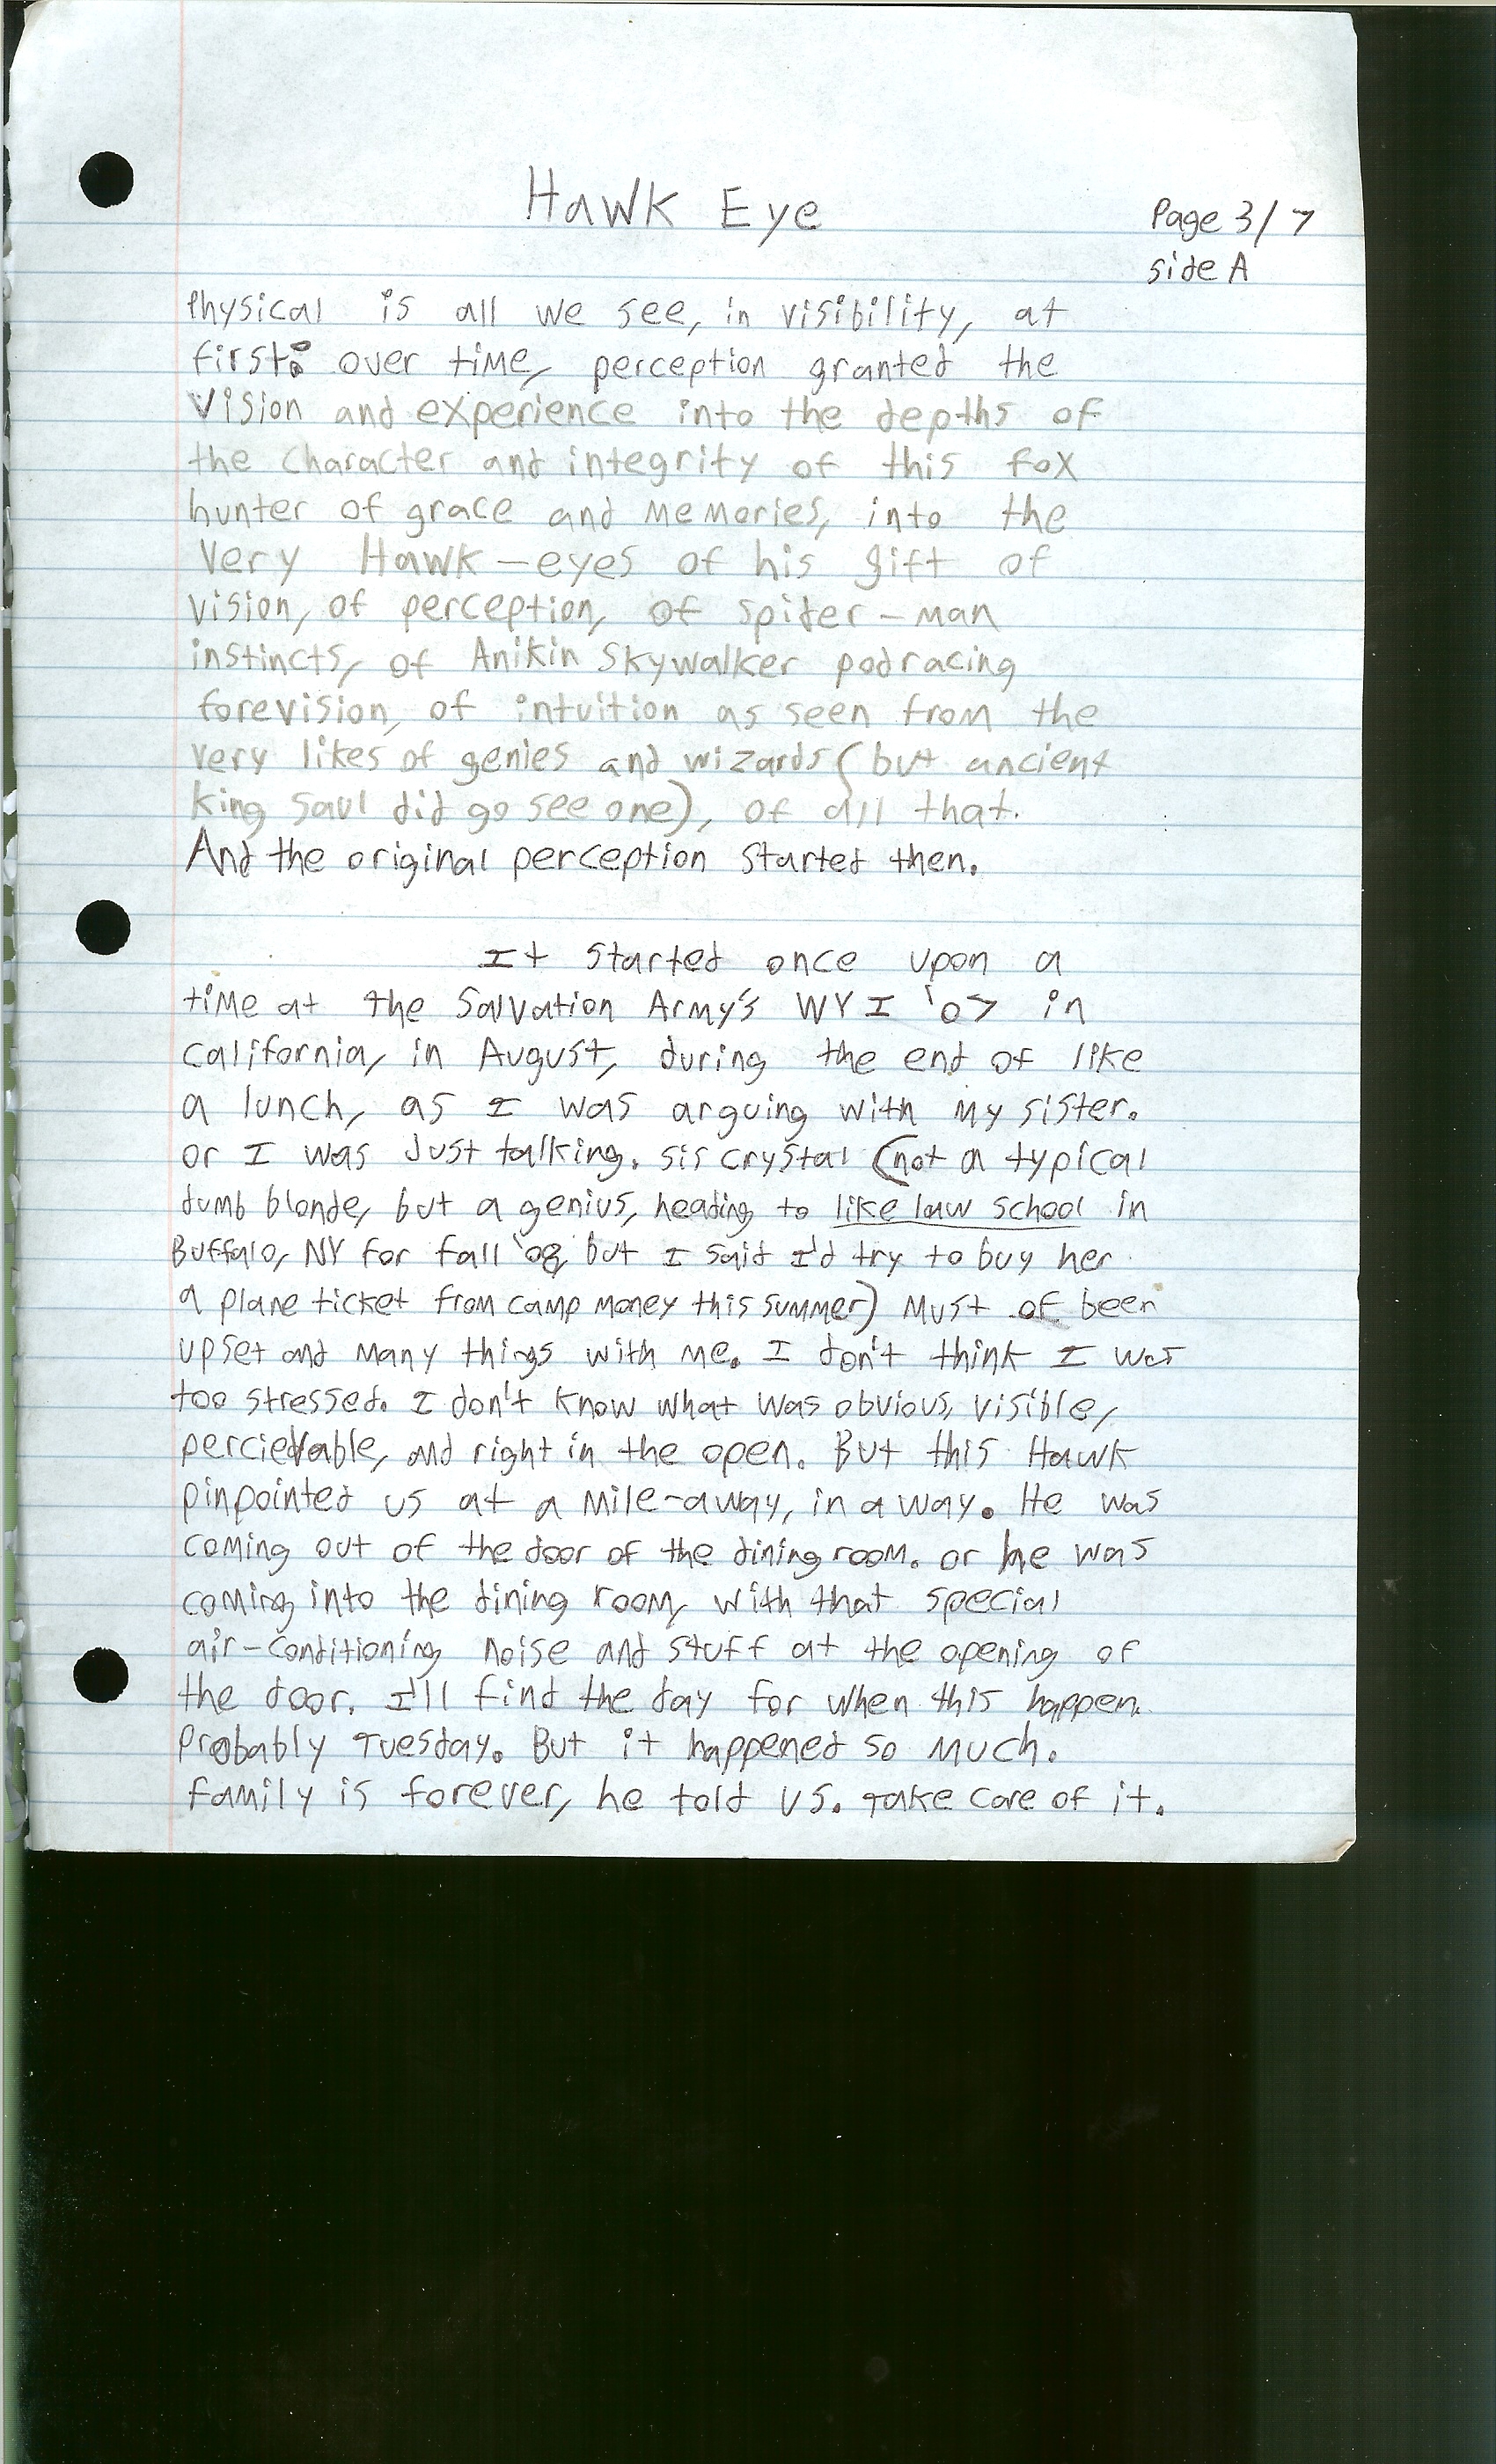 Hawk Eye
Page 3/7
side A
Physical is all we see, in visibility, at
first. over time, perception granted the
vision and experience into the depths of
the character and integrity of this fox
hunter of grace and memories, into the
very Hawk-eyes of his gift of
vision, of perception, of spider-man
instincts, of Anikin Skywalker podracing
forevision, of intuition as seen from the
very likes of genies and wizards (but ancient
king Saul did go see one), of all that.
And the original perception started then.
It started once upon a
time at the Salvation Army's WYI '07 in
California, in August, during the end of like
a lunch, as I was arguing with my sister.
or I was just talking. sis crystal (not a typical
dumb blonde, but a genius, heading to like law school in
Buffalo, NY for fall '08, but I said I'd try to buy her
a plane ticket from camp money this summer) must of been
upset and many things with me. I don't think I was
too stressed. I don't know what was obvious, visible,
percievable, and right in the open. But this Hawk
pinpointed us at a mile-away, in a way. He was
coming out of the door of the dining room. or he was
coming into the dining room, with that special
air-conditioning noise and stuff at the opening of
the door. I'll find the day for when this happen.
Probably Tuesday. But it happened so much.
family is forever, he told us. Take care of it.